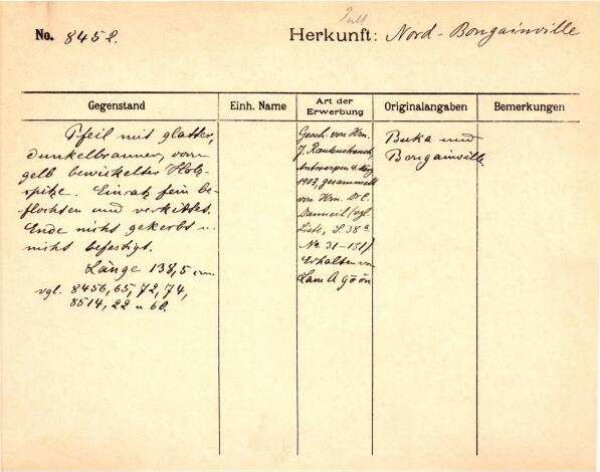 No. 8452.
Herkunft: Nord-Bougainville
Gegenstand
Einh. Name
Art der Erwerbung
Originalangaben
Bemerkungen
Pfeil mit glatter,
dunkelbrauner, vorn
gelb bewickelter Holz-
spitze. Einsatz fein be-
flochten und verkittet.
Ende nicht gekerbt u.
nicht befestigt.
Länge 138,5 cm
vgl. 8456, 65, 72, 74,
8514, 22 u 60.
Gesch. von Hrn.
J.
Antwerpen 4.
1903, gesammelt
von Hrn. Dr. C.
Danneil (vgl.
Liste, S. 38a
No 31-151)
Erhalten von
Buka und
Bougainville